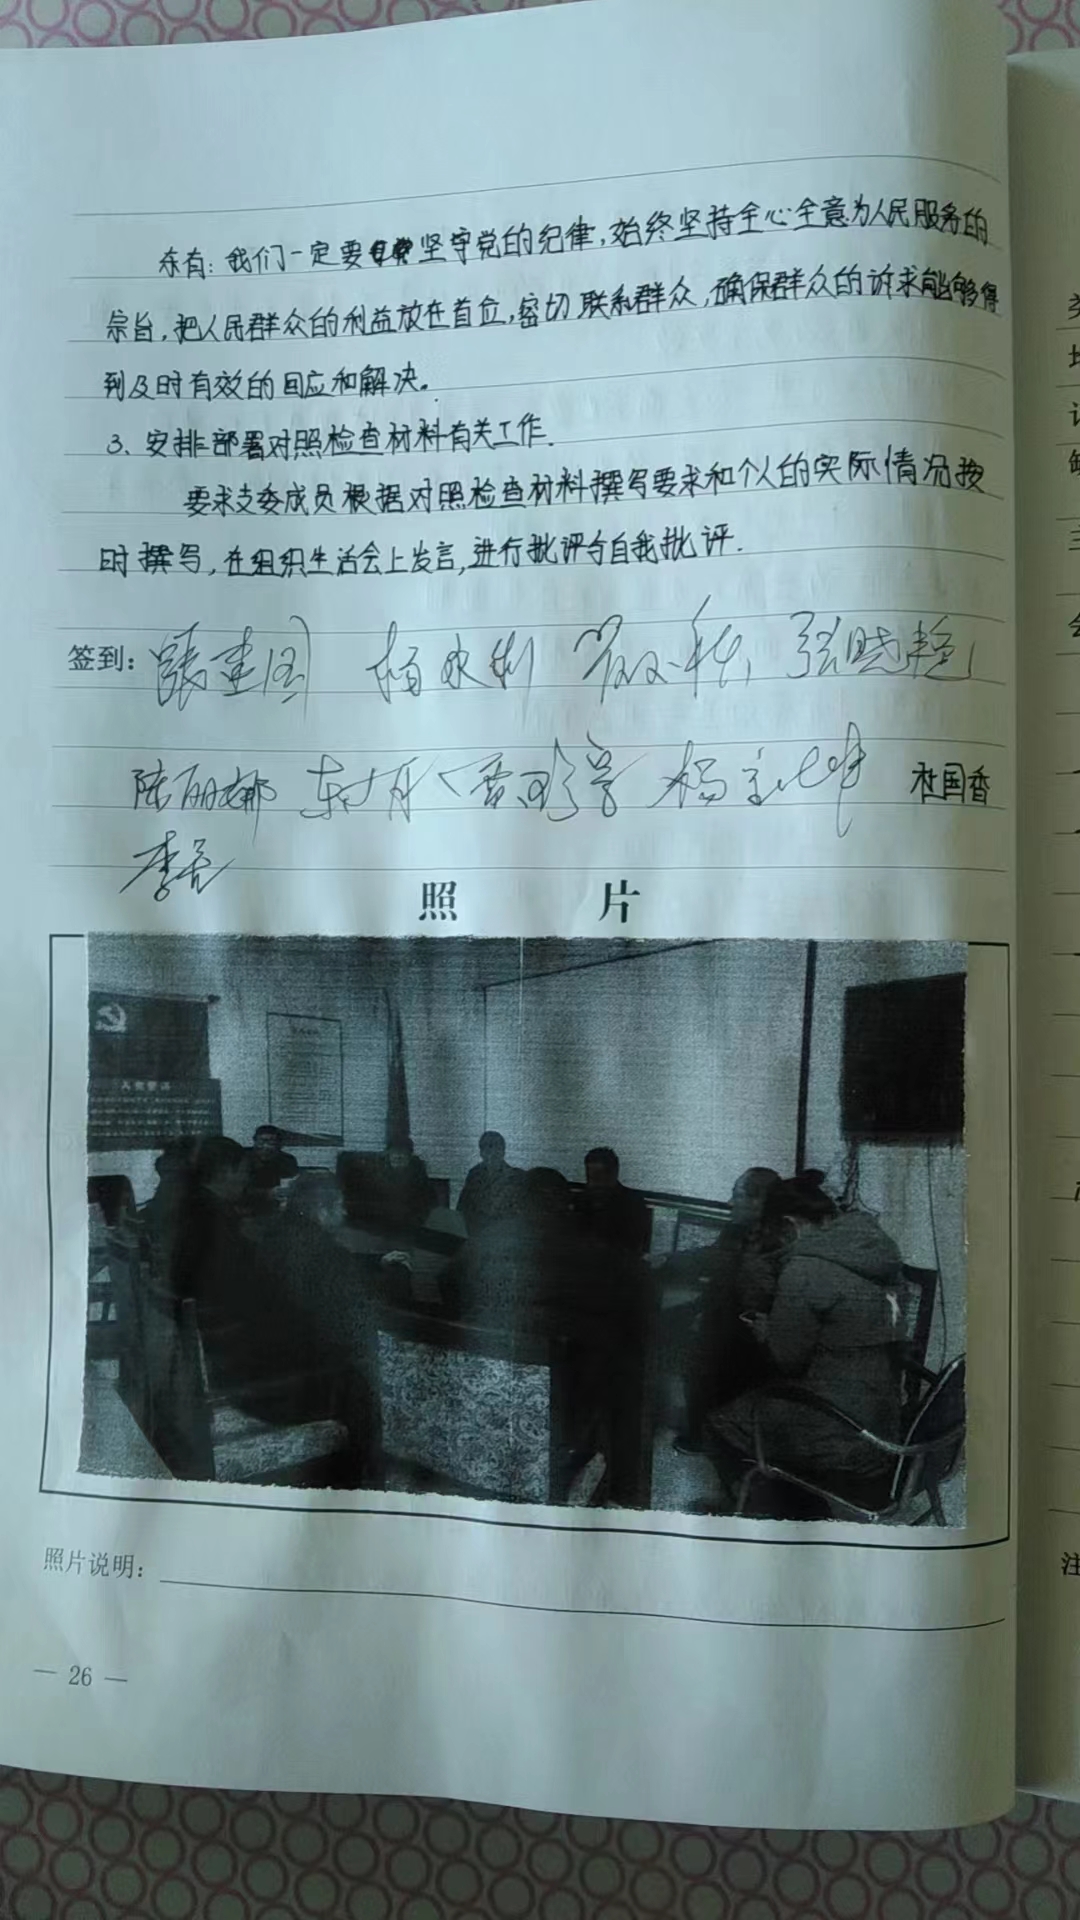 东有：我们一定要坚守党的纪律，始终坚持全心全意为人民服务的
宗旨，把人民群众的利益放在首位，密切联系群众，确保群众的诉求能够得
到及时有效的回应和解决。
3、安排部署对照检查材料有关工作.
要求支委成员根据对照检查材料撰写要求和个人的实际情况按
时撰写，在组织生活会上发言，进行批评与自我批评.
签到：张建国 杨永利 张晓艳
陈丽娜 东有 杜国香
照 片
入党誓词
照片说明：
— 26 —